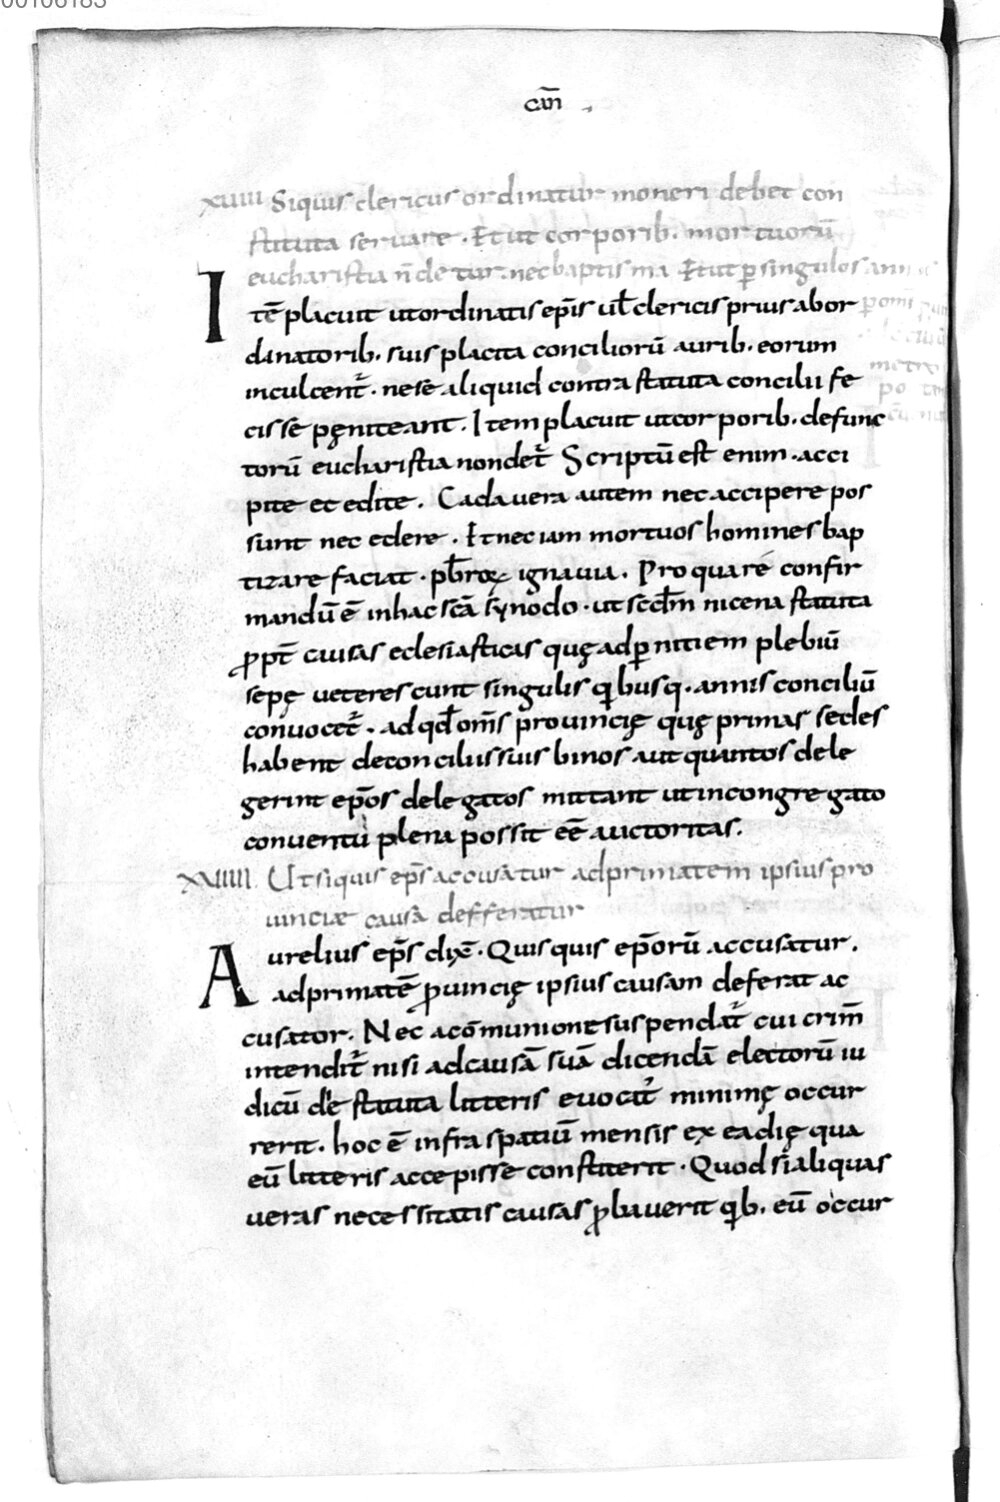 cañ
xuiiii Siquis clericus ordinatur moneri debet con
stituta seruare . Et ut corporib. mortuorū
eucharistia n̄ detur. nec baptisma Et ut ꝑ singulos annis
Itē placuit ut ordinatis ep̄is ul̄ clericis prius abor
dinatorib. suis placita conciliorū aurib. eorum
inculcent̄ . ne se aliquid contra statuta concilii fe
cisse pęniteant . Item placuit ut corporib. defunc
torū eucharistia non det̄ Scriptū est enim . acci
pite et edite . Cadauera autem nec accipere pos
sunt nec edere . Et nec iam mortuos homines bap
tizare faciat . pb̄roꝝ ignauia . Pro qua re confir
mandū ē in hac scā synodo . ut scdm̄ nicena statuta
ꝓpt̄ causas eclesiasticas quę ad ꝑnitiem plebiū
sepę ueterescunt singulis qibusq. annis conciliū
conuocet̄ . ad qd̄ om̄s prouincię quę primas sedes
habent de conciliis suis binos aut quantos dele
gerint ep̄os delegatos mittant ut in congregato
conuentu plena possit eē auctoritas.
xuiiiii. Ut si quis ep̄s accusatur ad primatem ipsius pro
uinciae causā defferatur
Aurelius ep̄s dix̄ . Quisquis ep̄orū accusatur .
ad primatē ꝓuincię ipsius causam deferat ac
cusator. Nec a cōmunione suspendat̄ cui crim̄
intendit̄ nisi ad causā suā dicendā electorū iu
dicū de statuta litteris euocat̄ minimę occur
rerit . hoc ē infra spatiū mensis ex ea dię qua
eū litteris accepisse constiterit . Quod si aliquas
ueras necessitatis causas ꝓbauerit qib. eū occur